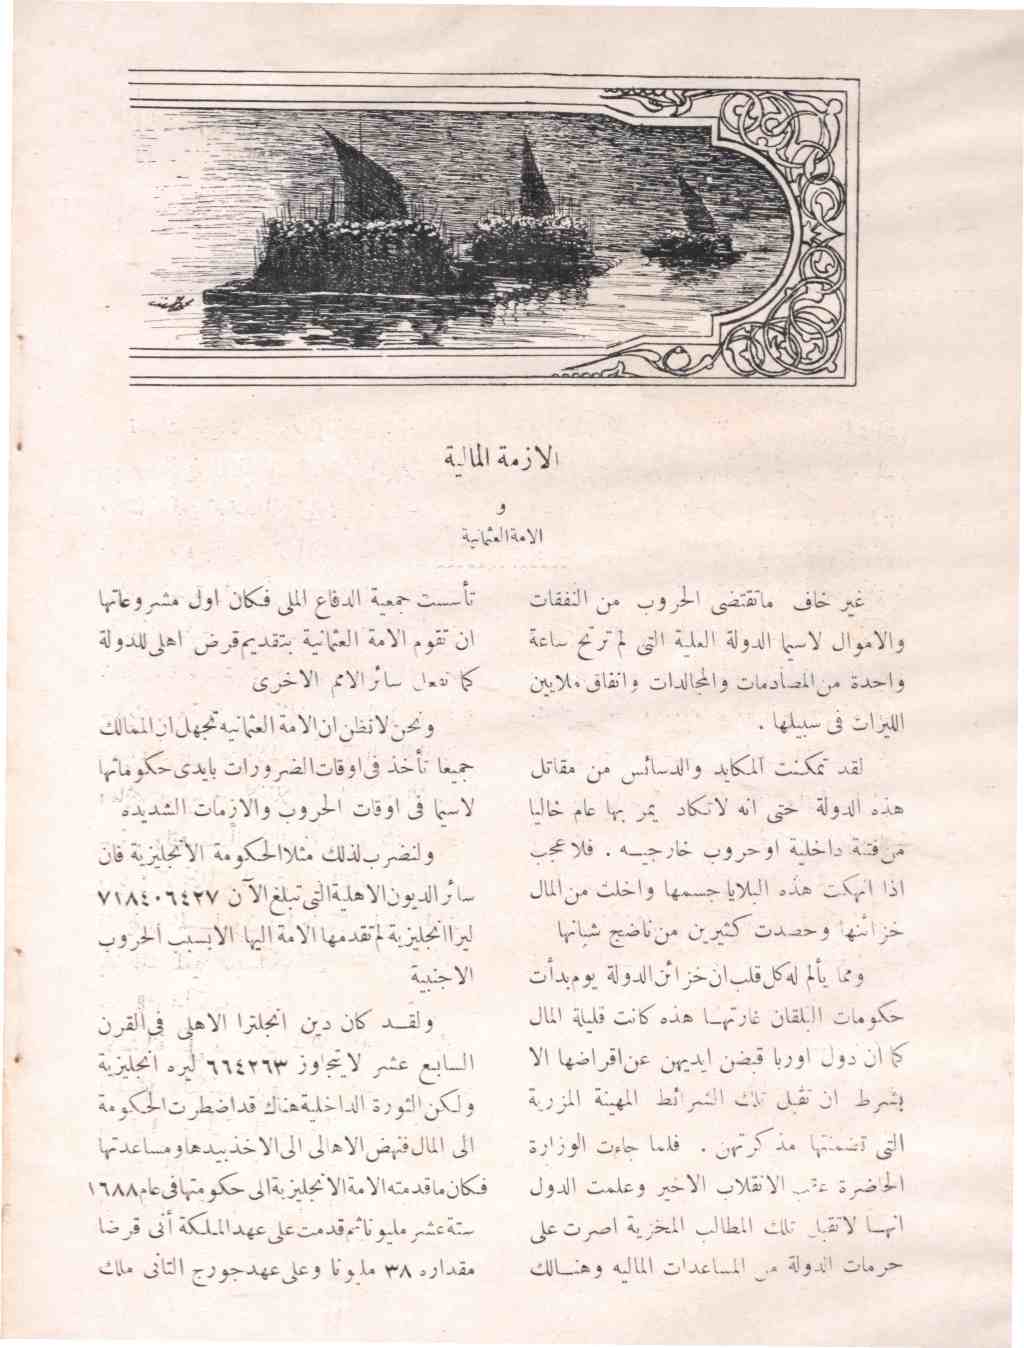 الازمة المالية
و
الامة العثمانية
غير خاف ماتقتضى الحروب من النفقات
والاموال لاسيما الدولة العلية التى لم ترتح ساعة
واحدة من المصادمات والمجالدات وانفاق ملايين
الليزات فى سبيلها .
لقد تمكنت المكايد والدسائس من مقاتل
هذه الدولة حتى انه لاتكاد يمر بها عام خاليا
من فتنة داخلية اوحروب خارجيـــه . فلاعجب
اذا انهكت هذه البلايا جسمها واخلت من المال
خزائنها وحصدت كثيرين من ناضج شبانها
ومما يألم له كل قلب ان خزائن الدولة يوم بدأت
حكومات البلقان غارتهــا هذه كانت قليلة المال
كما ان دول اوربا قبضن ايديهن عن اقراضها الا
بشرط ان تقبل تلك الشرائط المهينة المزرية
التى تضمنتها مذكرتهن . فلما جاءت الوزارة
الحاضرة عقب الانقلاب الاخير وعلمت الدول
انهــا لاتقبل تلك المطالب المخزية اصرت على
حرمات الدولة من المساعدات الماليه وهنــالك
تأسست جمعية الدفاع الملى فكان اول مشروعاتها
ان تقوم الامة العثمانية بتقديم قرض اهلى للدولة
كما تفعل سائر الامم الاخرى
ونحن لانظن ان الامة العثمانيه تجهل ان الممالك
جميعا تأخذ فى اوقات الضرورات بايدى حكوماتها
لاسيما فى اوقات الحروب والازمات الشديده
ولنضرب لذلك مثلا الحكومة الانجليزية فان
سائر الديون الاهلية التى تبلغ الآن ٧١٨٤٠٦٤٢٧
ليرا انجليزية لم تقدمها الامة اليها الا بسبب الحروب
الاجنبية
ولقــد كان دين انجلترا الاهلى فى القرن
السابع عشر لايتجاوز ٦٦٤٢٦٣ ليره انجليزية
ولكن الثورة الداخلية هناك قد اضطرت الحكومة
الى المال فنهض الاهالى الى الاخذ بيدها ومساعدتها
فكان ماقدمته الامة الانجليزية الى حكومتها فى عام ١٦٨٨
ستة عشر مليونا ثم قدمت على عهد الملكة أنى قرضا
مقداره ٣٨ مليونا وعلى عهد جورج الثانى ملك